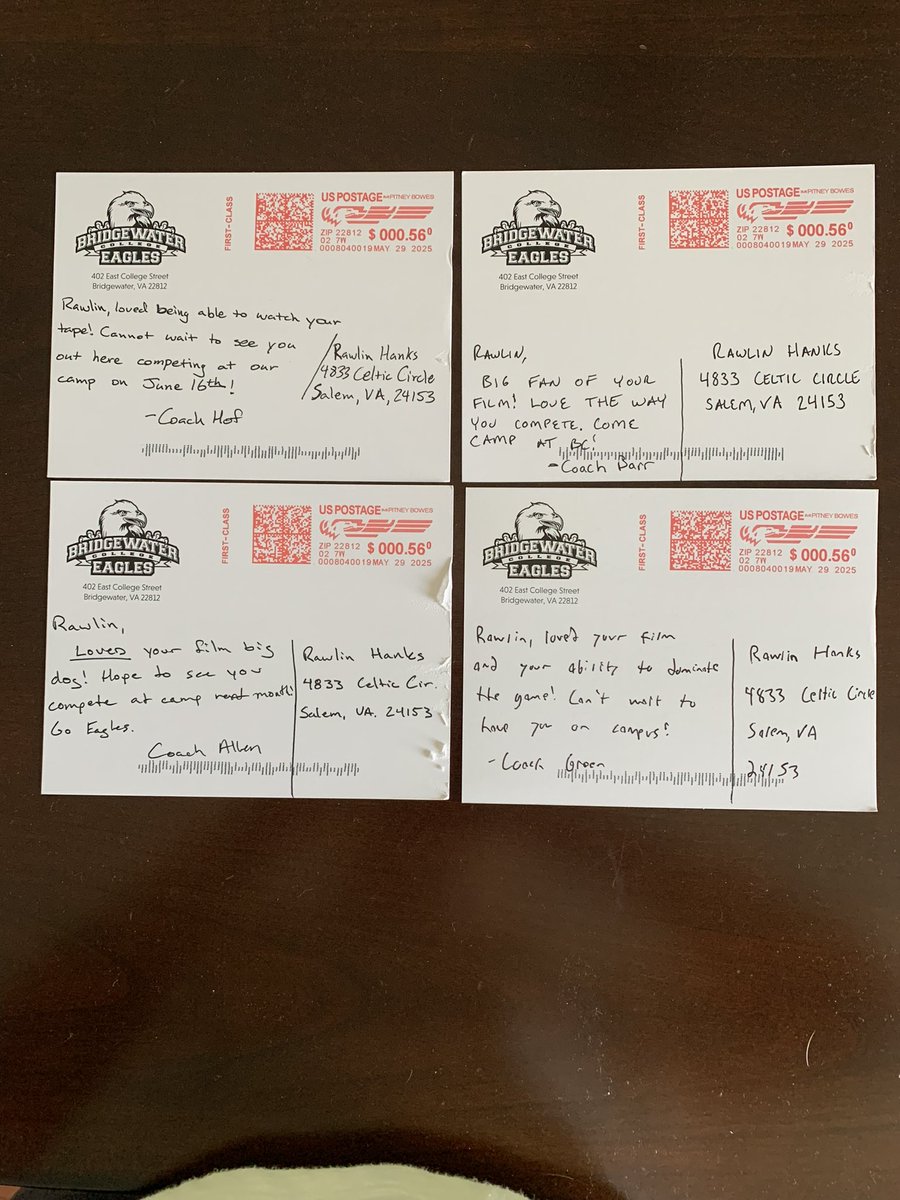 BRIDGEWATER
COLLEGE
EAGLES
402 East College Street
Bridgewater, VA 22812
FIRST-CLASS
US POSTAGE PITNEY BOWES
ZIP 22812
02 7W
$ 000.56⁰
0008040019 MAY 29 2025
Rawlin, loved being able to watch your
tape! Cannot wait to see you
out here competing at our
camp on June 16th!
-Coach Hof
Rawlin Hanks
4833 Celtic Circle
Salem, VA, 24153
BRIDGEWATER
COLLEGE
EAGLES
402 East College Street
Bridgewater, VA 22812
FIRST-CLASS
US POSTAGE PITNEY BOWES
ZIP 22812
02 7W
$ 000.56⁰
0008040019 MAY 29 2025
RAWLIN,
BIG FAN OF YOUR
FILM! LOVE THE WAY
YOU COMPETE. COME
CAMP AT BC!
-Coach Barr
RAWLIN HANKS
4833 CELTIC CIRCLE
SALEM, VA 24153
BRIDGEWATER
COLLEGE
EAGLES
402 East College Street
Bridgewater, VA 22812
FIRST-CLASS
US POSTAGE PITNEY BOWES
ZIP 22812
02 7W
$ 000.56⁰
0008040019 MAY 29 2025
Rawlin,
your film big
dog! Hope to see you
compete at camp next month!
Go Eagles.
Coach Allen
Rawlin Hanks
4833 Celtic Cir.
Salem, VA. 24153
BRIDGEWATER
COLLEGE
EAGLES
402 East College Street
Bridgewater, VA 22812
FIRST-CLASS
US POSTAGE PITNEY BOWES
ZIP 22812
02 7W
$ 000.56⁰
0008040019 MAY 29 2025
Rawlin, loved your film
and your ability to dominate
the game! Can't wait to
have you on campus!
-Coach Green
Rawlin Hanks
4833 Celtic Circle
Salem, VA
24153